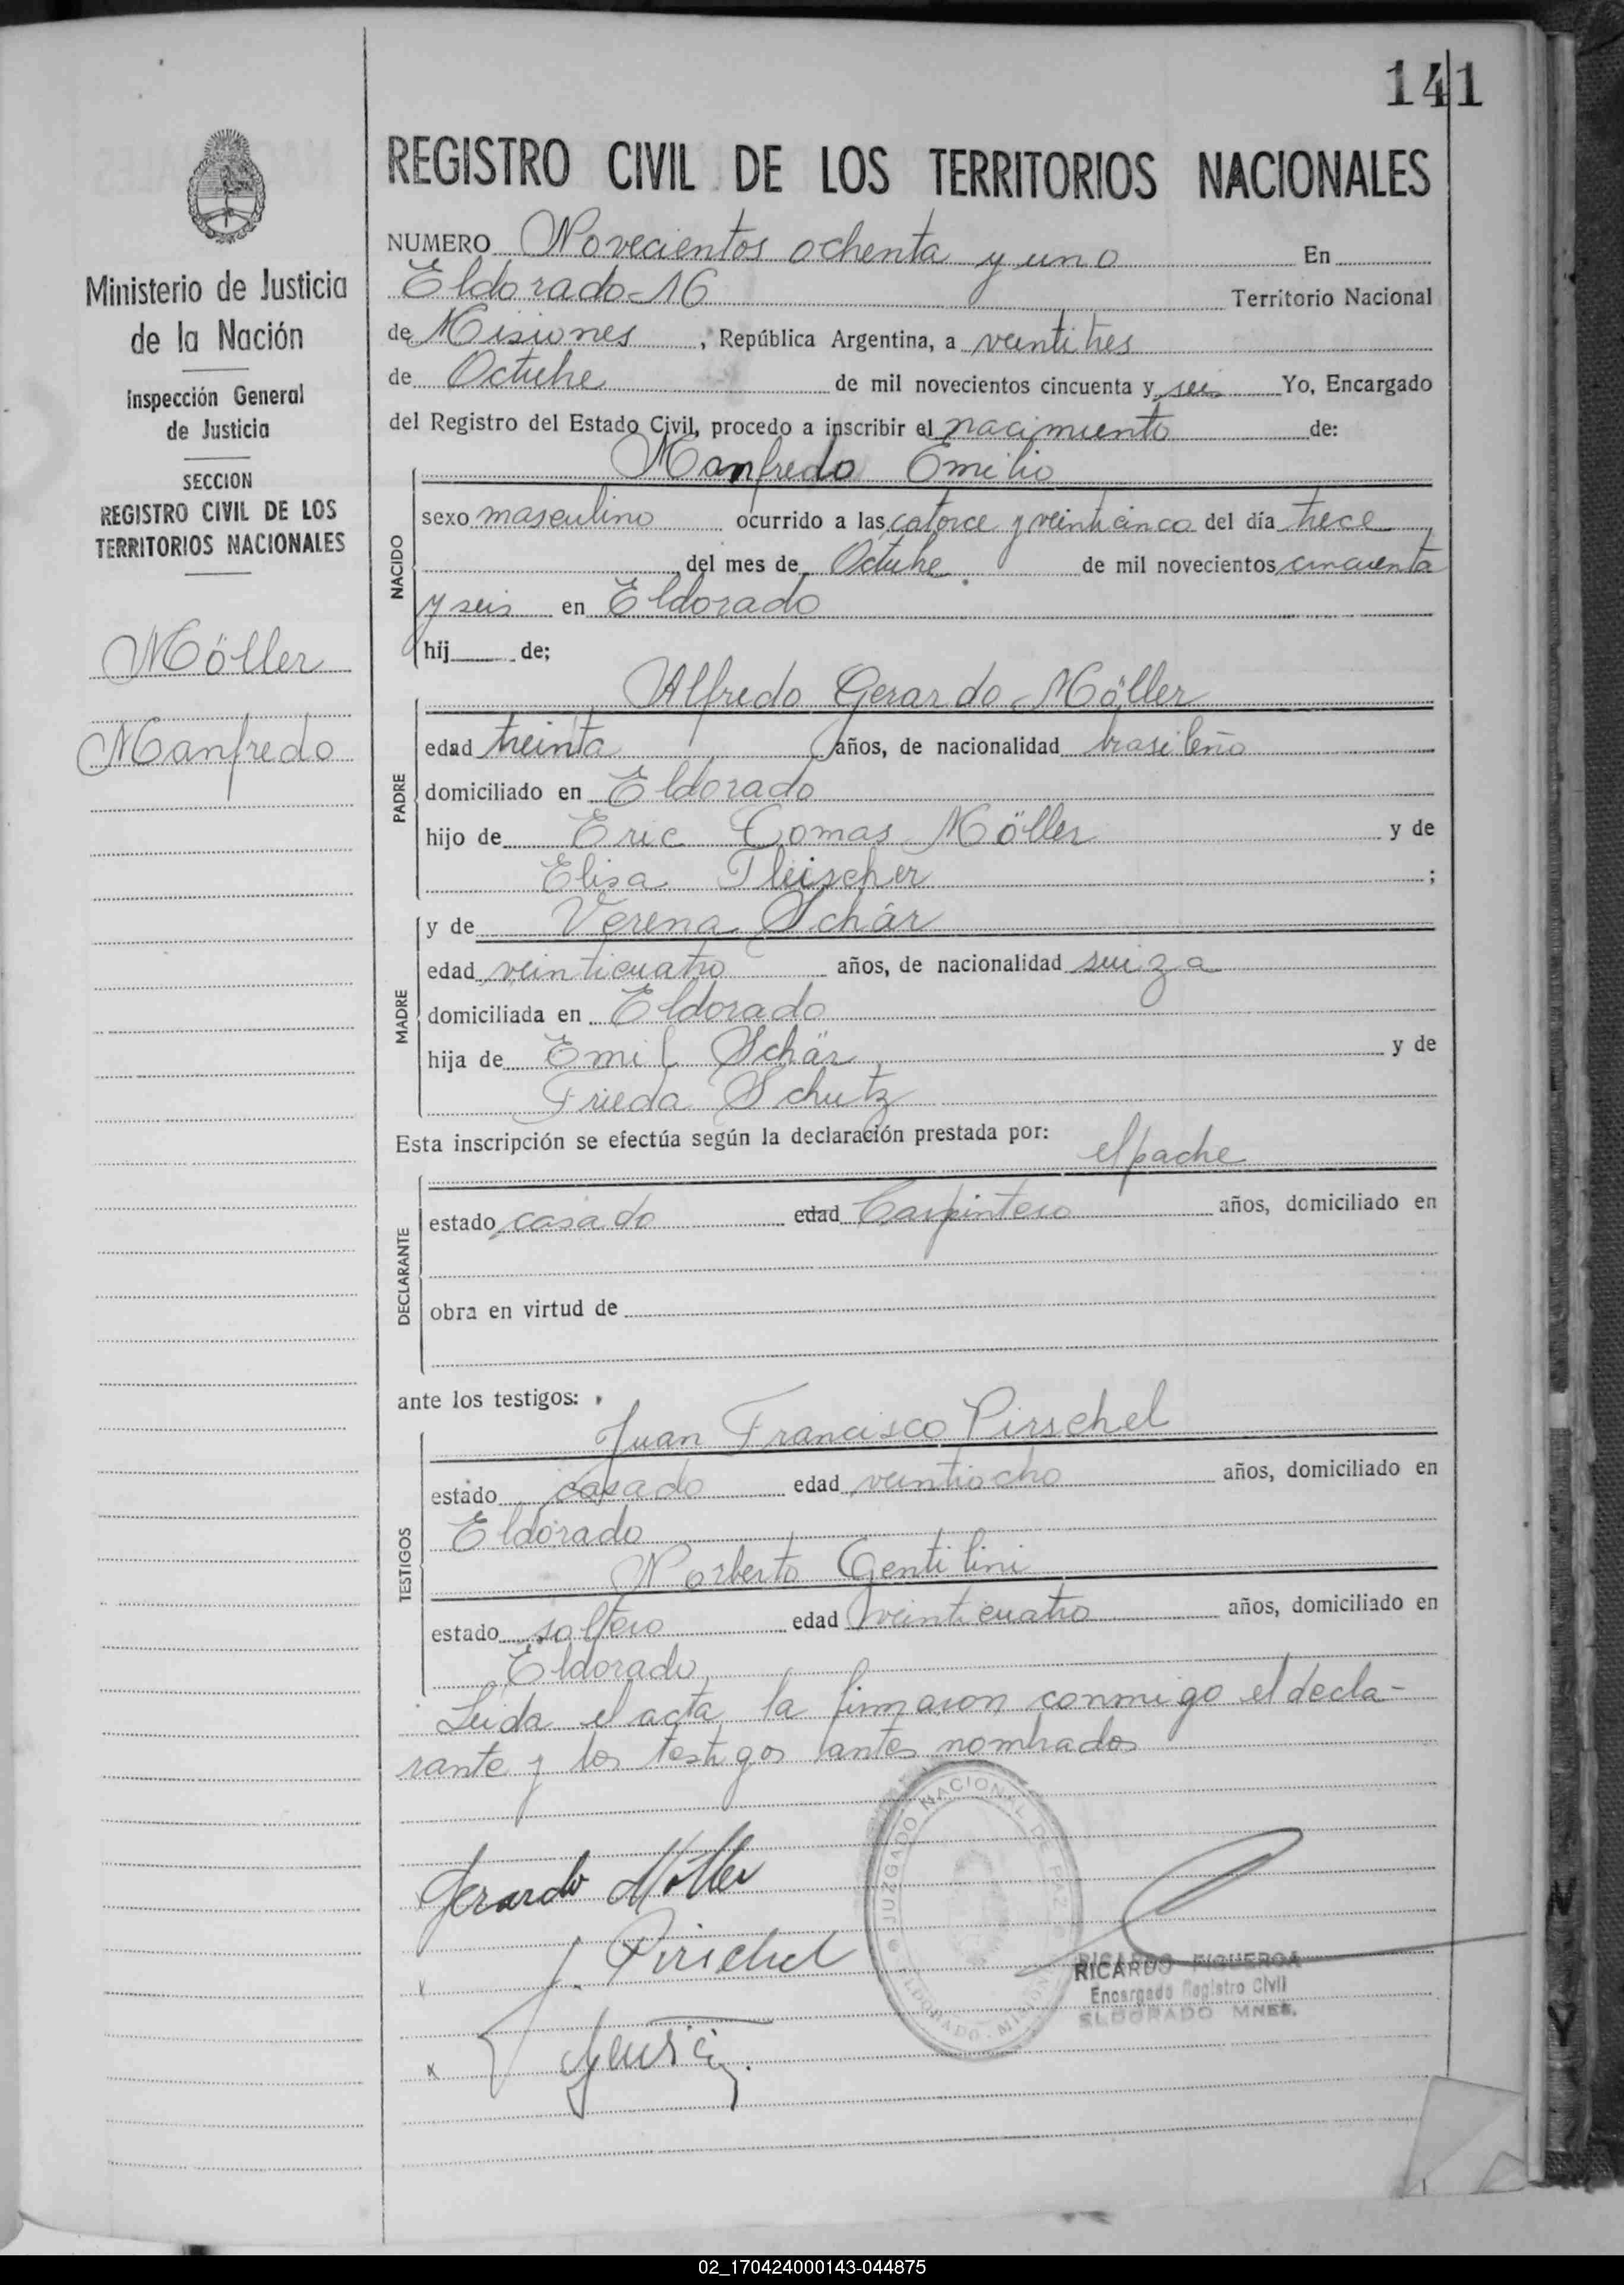 141
REGISTRO CIVIL DE LOS TERRITORIOS NACIONALES
Ministerio de Justicia
de la Nación
Inspección General
de Justicia
SECCION
REGISTRO CIVIL DE LOS
TERRITORIOS NACIONALES
Möller
Manfredo
NUMERO Novecientos ochenta y uno En
Eldorado-16 Territorio Nacional
de Misiones, República Argentina, a veintitres
de Octubre de mil novecientos cincuenta y seis Yo, Encargado
del Registro del Estado Civil, procedo a inscribir el nacimiento de:
Manfredo Emilio
NACIDO
sexo masculino ocurrido a las catorce y veinticinco del día trece
del mes de Octubre de mil novecientos cincuenta
y seis en Eldorado
hij de;
Alfredo Gerardo Möller
PADRE
edad treinta años, de nacionalidad brasileño
domiciliado en Eldorado
hijo de Eric Tomas Möller y de
Elisa Fleischer ;
MADRE
y de Verena Schär
edad veinticuatro años, de nacionalidad suiza
domiciliada en Eldorado
hija de Emil Schär y de
Frieda Schutz
Esta inscripción se efectúa según la declaración prestada por:
el padre
DECLARANTE
estado casado edad Carpintero años, domiciliado en
obra en virtud de
ante los testigos:
Juan Francisco Pirschel
TESTIGOS
estado casado edad veintiocho años, domiciliado en
Eldorado
Norberto Gentilini
estado soltero edad veinticuatro años, domiciliado en
Eldorado
Leida el acta, la firmaron conmigo el decla-
rante y los testigos antes nombrados
JUZGADO NACIONAL DE PAZ
ELDORADO - MISIONES
Gerardo Möller
J. Pirschel
RICARDO FIGUEROA
Encargado Registro Civil
ELDORADO MNES.
02_170424000143-044875